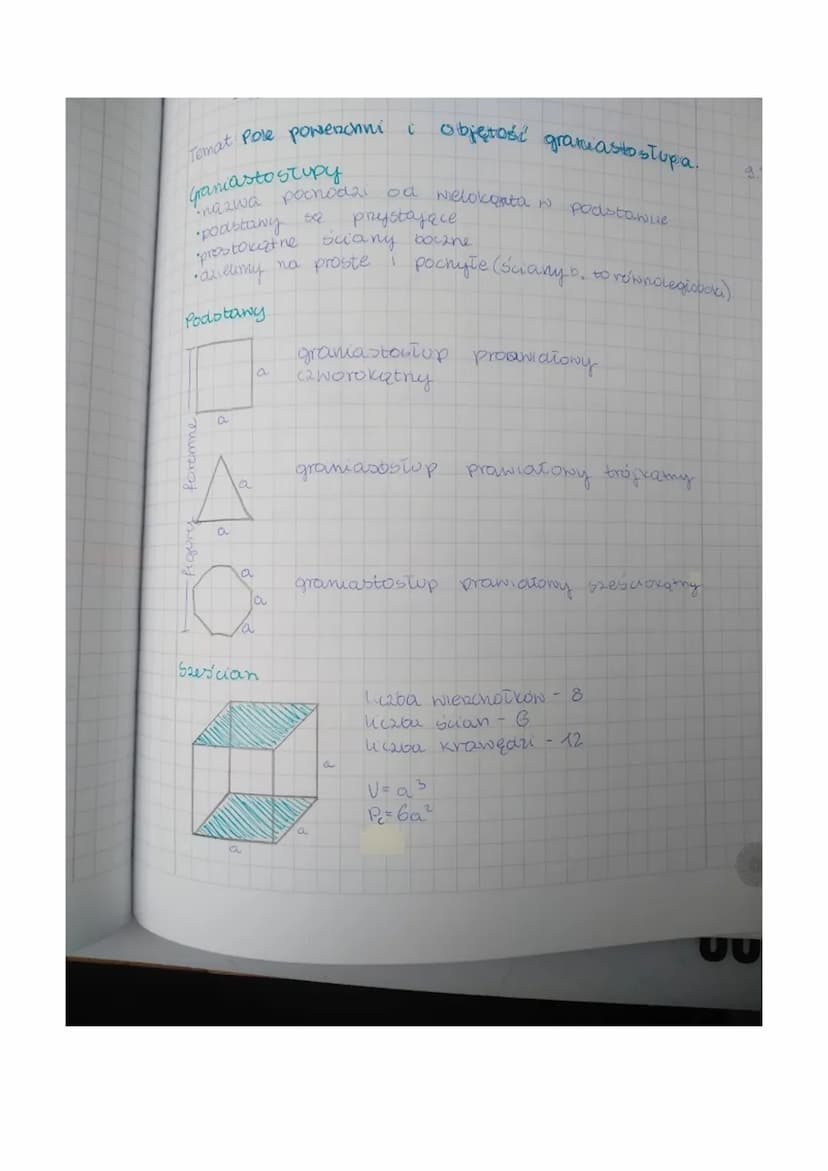 Temat Pole powierzchni i objętość graniastosłupa.
Graniastosłupy
•nazwa pochodzi od wielokąta w podstawie
•podstawy są przystające
•prostokątne ściany boczne
•dzielimy na proste i pochyłe (ściany b. to równoległoboki)
Podstawy
graniastosłup prawidłowy
czworokątny
a
a
figury foremne
graniastosłup prawidłowy trójkątny
a
a
graniastosłup prawidłowy sześciokątny
a
a
a
Sześcian
liczba wierzchołków - 8
liczba ścian - 6
liczba krawędzi - 12
a
V = a³
Pc = 6a²
a
a